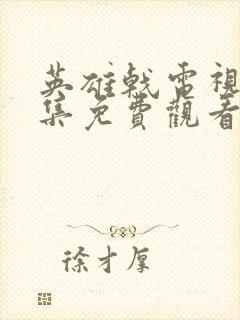 英雄戟電視
集免費觀看
徐才厚